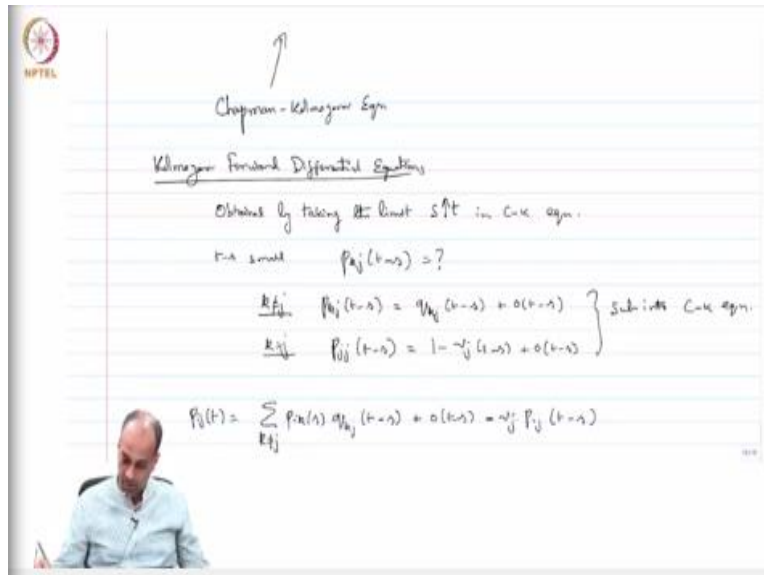 NPTEL
Chapman-Kolmogorov Eqn
Kolmogorov Forward Differential Equations
Obtained by taking the limit s↑t in C-K eqn.
t-s small P_kj(t-s) = ?
k≠j P_kj(t-s) = q_kj (t-s) + o(t-s) } Sub into C-K eqn.
k=j P_jj(t-s) = 1 - ν_j(t-s) + o(t-s)
P_ij(t) = ∑_{k≠j} P_ik(s) q_kj (t-s) + o(t-s) - ν_j P_ij (t-s)